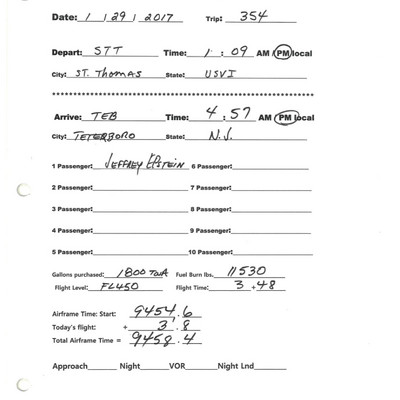 Date: 1 / 29 / 2017 Trip: 354
Depart: STT Time: 1 : 09 AM / PM local
City: ST. THOMAS State: USVI
Arrive: TEB Time: 4 : 57 AM PM local
City: TETERBORO State: N.J.
1 Passenger: JEFFREY EPSTEIN 6 Passenger:
2 Passenger: 7 Passenger:
3 Passenger: 8 Passenger:
4 Passenger: 9 Passenger:
5 Passenger: 10 Passenger:
Gallons purchased: 1800 Fuel Burn lbs. 11530
Flight Level: FL450 Flight Time: 3 + 48
Airframe Time: Start: 9454.6
Today's flight: + 3.8
Total Airframe Time = 9458.4
Approach Night VOR Night Lnd